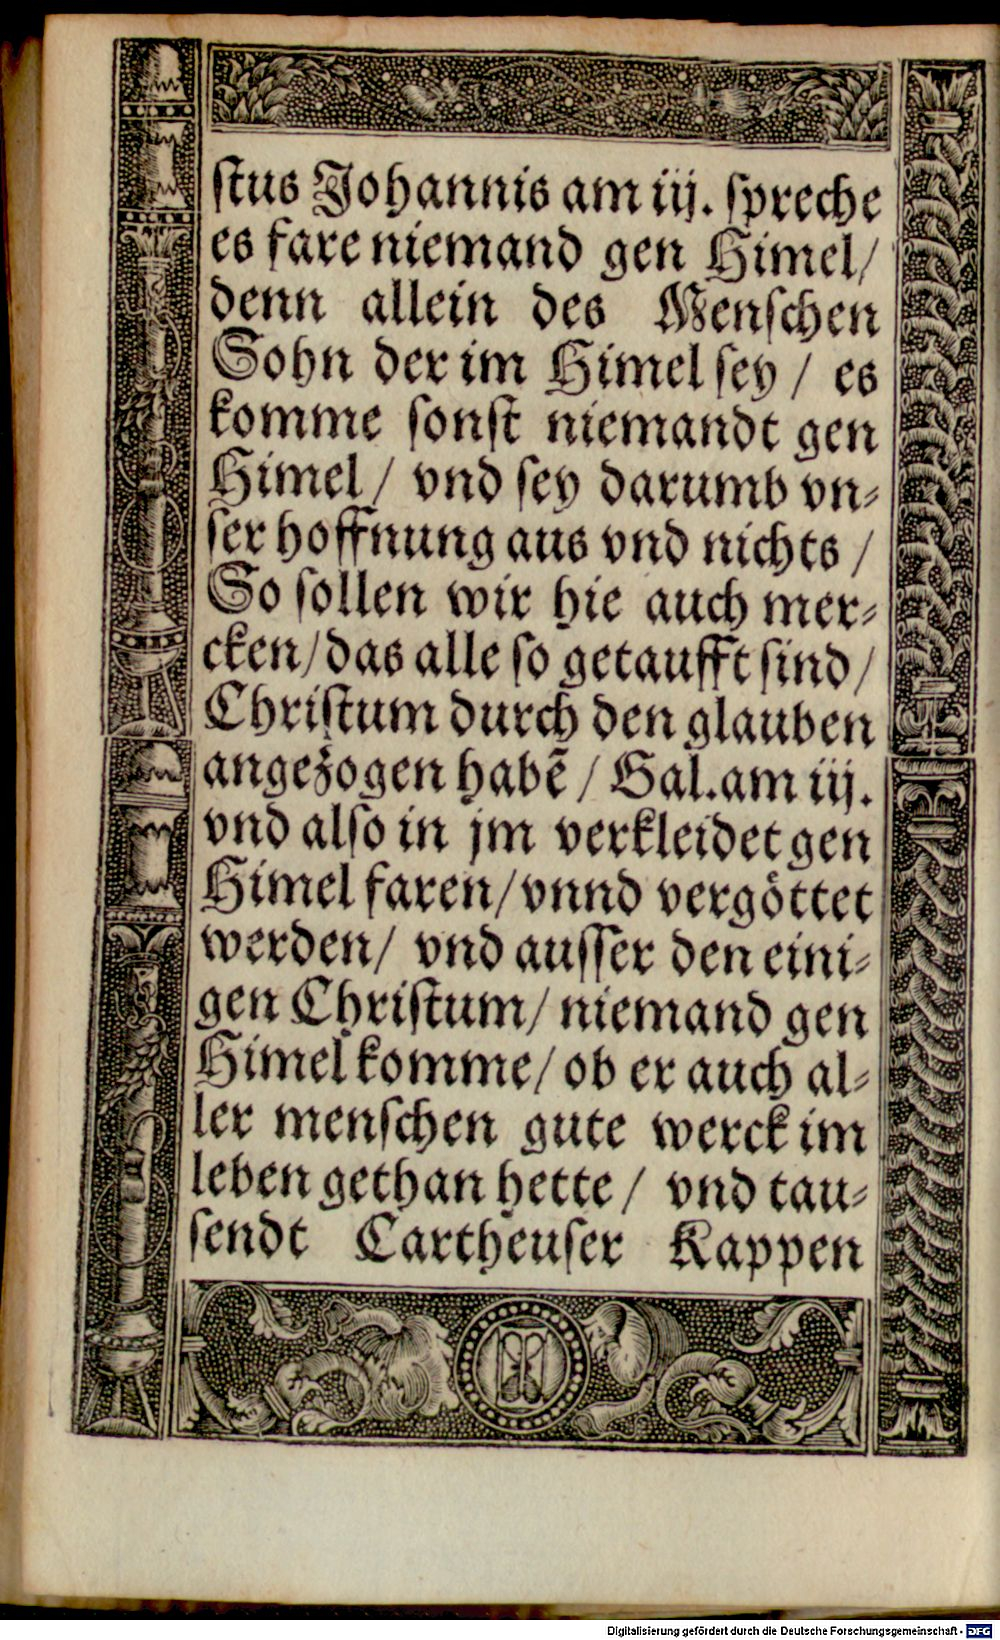 stus Johannis am iij. spreche
es fare niemand gen Himel/
denn allein des Menschen
Sohn der im Himel sey / es
komme sonst niemandt gen
Himel / vnd sey darumb vn⸗
ser hoffnung aus vnd nichts /
So sollen wir hie auch mer⸗
cken/das alle so getaufft sind/
Christum durch den glauben
angezogen habẽ / Gal. am iij.
vnd also in jm verkleidet gen
Himel faren/vnnd vergöttet
werden/ vnd ausser den eini⸗
gen Christum/ niemand gen
Himel komme/ ob er auch al⸗
ler menschen gute werck im
leben gethan hette / vnd tau⸗
sendt Cartheuser Kappen
Digitalisierung gefördert durch die Deutsche Forschungsgemeinschaft - DFG